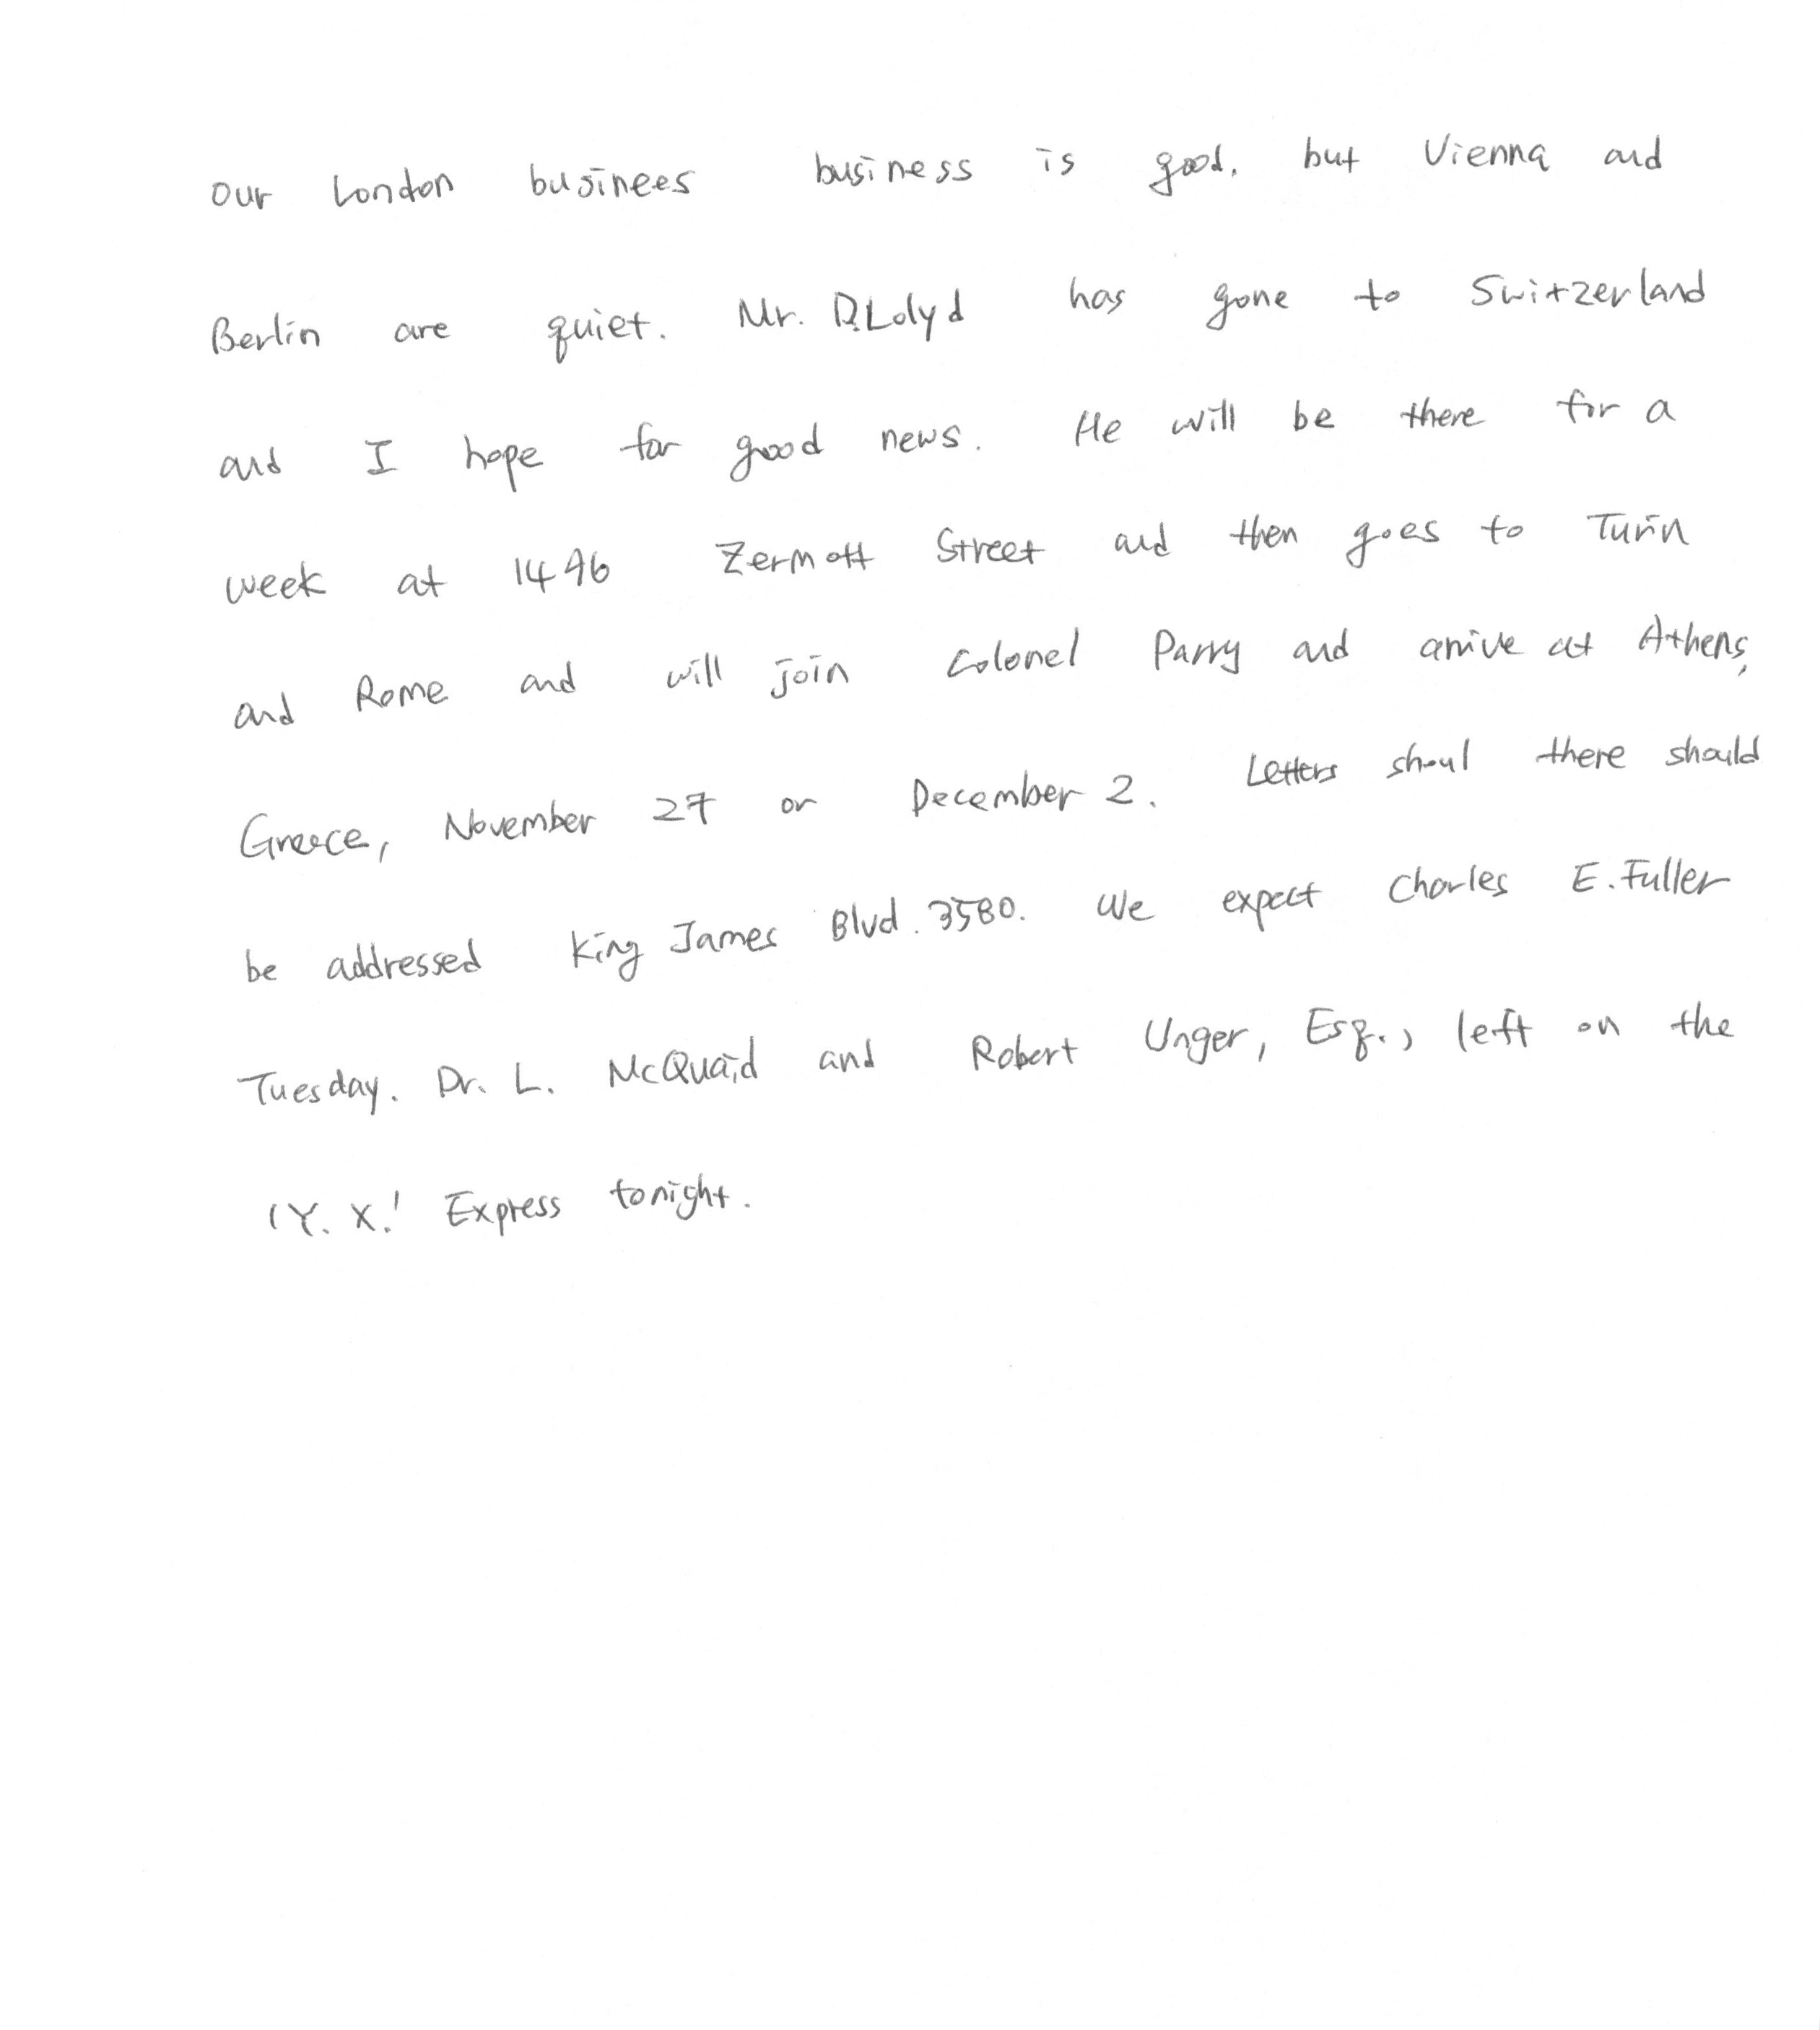 Our London businees business is good, but Vienna and
Berlin are quiet. Mr. D.Lolyd has gone to Switzerland
and I hope for good news. He will be there for a
week at 1496 Zermott Street and then goes to Turin
and Rome and will join Colonel Parry and arrive at Athens,
Greece, November 27 or December 2. Letters shoul there should
be addressed King James Blvd. 3580. We expect Charles E. Fuller
Tuesday. Dr. L. McQuaid and Robert Unger, Esq., left on the
'Y. X.' Express tonight.